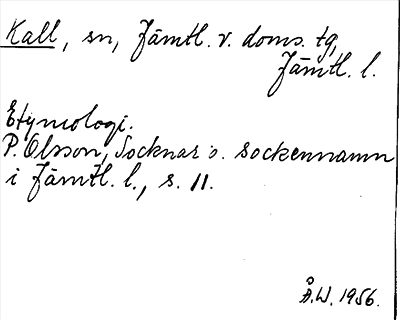 Kall, sn, Jämtl. v. doms. tg,
Jämtl. l.
Etymologi.
P. Olsson, Socknar o. sockennamn
i Jämtl. l., s. 11.
Å.W. 1956.